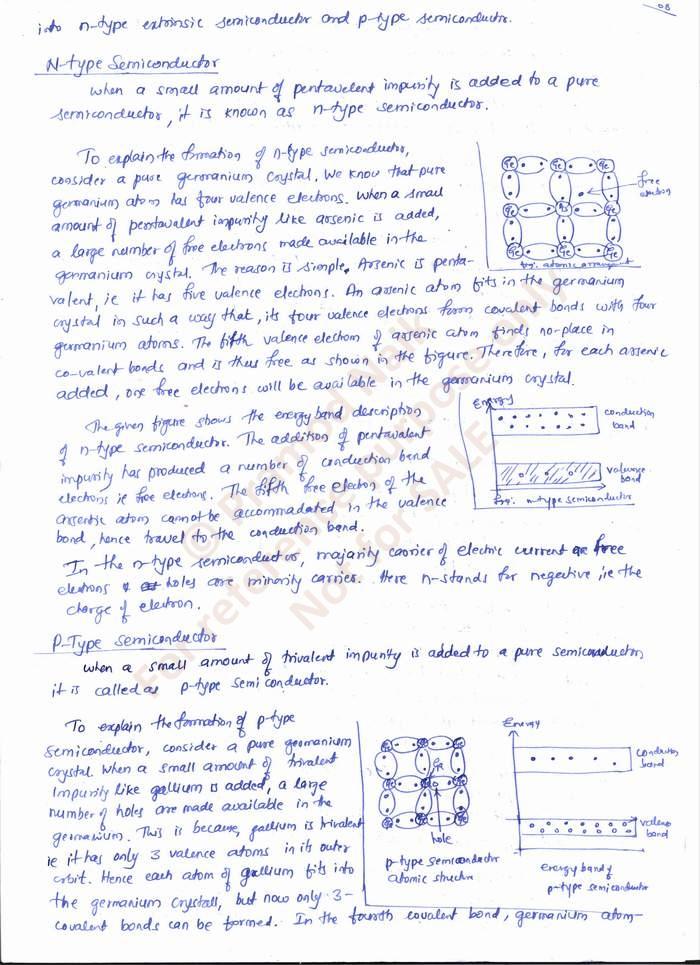 08
into n-type extrinsic semiconductor and p-type semiconductor.
N-type Semiconductor
when a small amount of pentavelent impurity is added to a pure
semiconductor, it is known as n-type semiconductor.
To explain the formation of n-type semiconductor,
consider a pure germanium crystal. We know that pure
germanium atom has four valence electrons. when a small
amount of pentavalent impurity like arsenic is added,
a large number of free electrons made available in the
germanium crystal. The reason is simple. Arsenic is penta-
valent, ie it has five valence electrons. An arsenic atom fits in the germanium
crystal in such a way that, its four valence electrons form covalent bonds with four
germanium atoms. The fifth valence electron of arsenic atom finds no-place in
co-valent bonds and is thus free as shown in the figure. Therefore, for each arsenic
added, one free electrons will be available in the germanium crystal.
Ge Ge Ge
Ge As Ge
Ge Ge Ge
free
electron
fig: atomic arrangement
The given figure shows the energy band description
of n-type semiconductor. The addition of pentavalent
impurity has produced a number of conduction band
electrons ie free electrons. The fifth free electron of the
arsentic atom cannot be accommadated in the valence
bond, hence travel to the conduction band.
Energy
conduction
band
valence
band
fig: n-type semiconductor
In the n-type semiconductor, majority carrier of electric current are free
electrons & holes are minority carrier. Here n-stands for negective, ie the
charge of electron.
P-Type Semiconductor
when a small amount of trivalent impurity is added to a pure semiconductor,
it is called as p-type semiconductor.
To explain the formation of p-type
semiconductor, consider a pure germanium
crystal. When a small amount of trivalent
impurity like gallium is added, a large
number of holes are made available in the
germanium. This is because, gallium is trivalent
ie it has only 3 valence atoms in its outer
orbit. Hence each atom of gallium fits into
the germanium crystall, but now only 3-
covalent bonds can be formed. In the fourth covalent bond, germanium atom-
Ga
hole
p-type semiconductor
atomic structure
Energy
conduction
band
valence
band
energy band of
p-type semiconductor
© Pramod Naik
For reference purpose only
Not for SALE